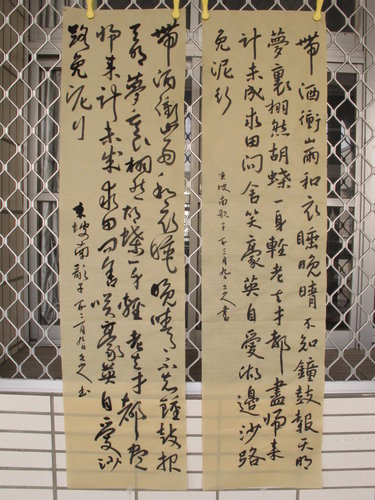 帶酒衝山雨和衣睡晚晴不知鐘鼓報天明
夢裏栩然胡蝶一身輕老去才都盡歸來
計未成求田問舍笑豪英自愛湖邊沙路
免泥行
東坡南歌子 月 書
帶酒衝山雨和衣睡晚晴不知鐘鼓報
天明夢裏栩然胡蝶一身輕老去才都盡
歸來計未成求田問舍笑豪英自愛沙
路免泥行
東坡南歌子 月 書